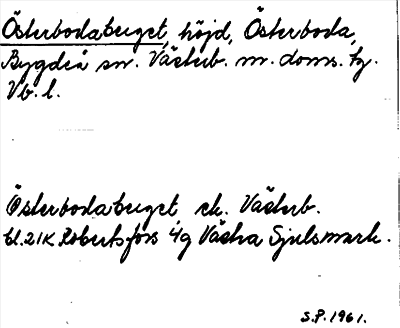 Österbodaberget, höjd, Österboda,
Bygdeå sn. Västerb. m. doms. tg.
Vb. l.
Österbodaberget, ek. Västerb.
bl. 21K Robertsfors 4g Västra Sjulsmark.
S.P. 1961.